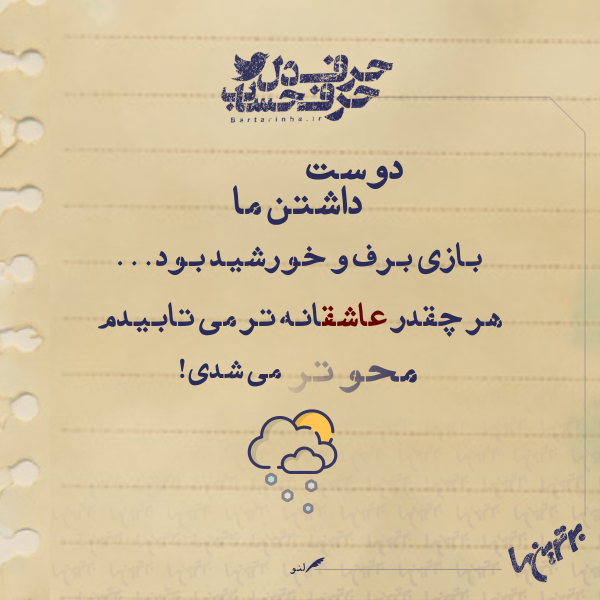 حرف دل
حرف حساب
Bartarinha.ir
دوست
داشتن ما
بازی برف و خورشید بود...
هر چقدر عاشقانه تر می تابیدم
محو تر می شدی!
لنو
برترین ها